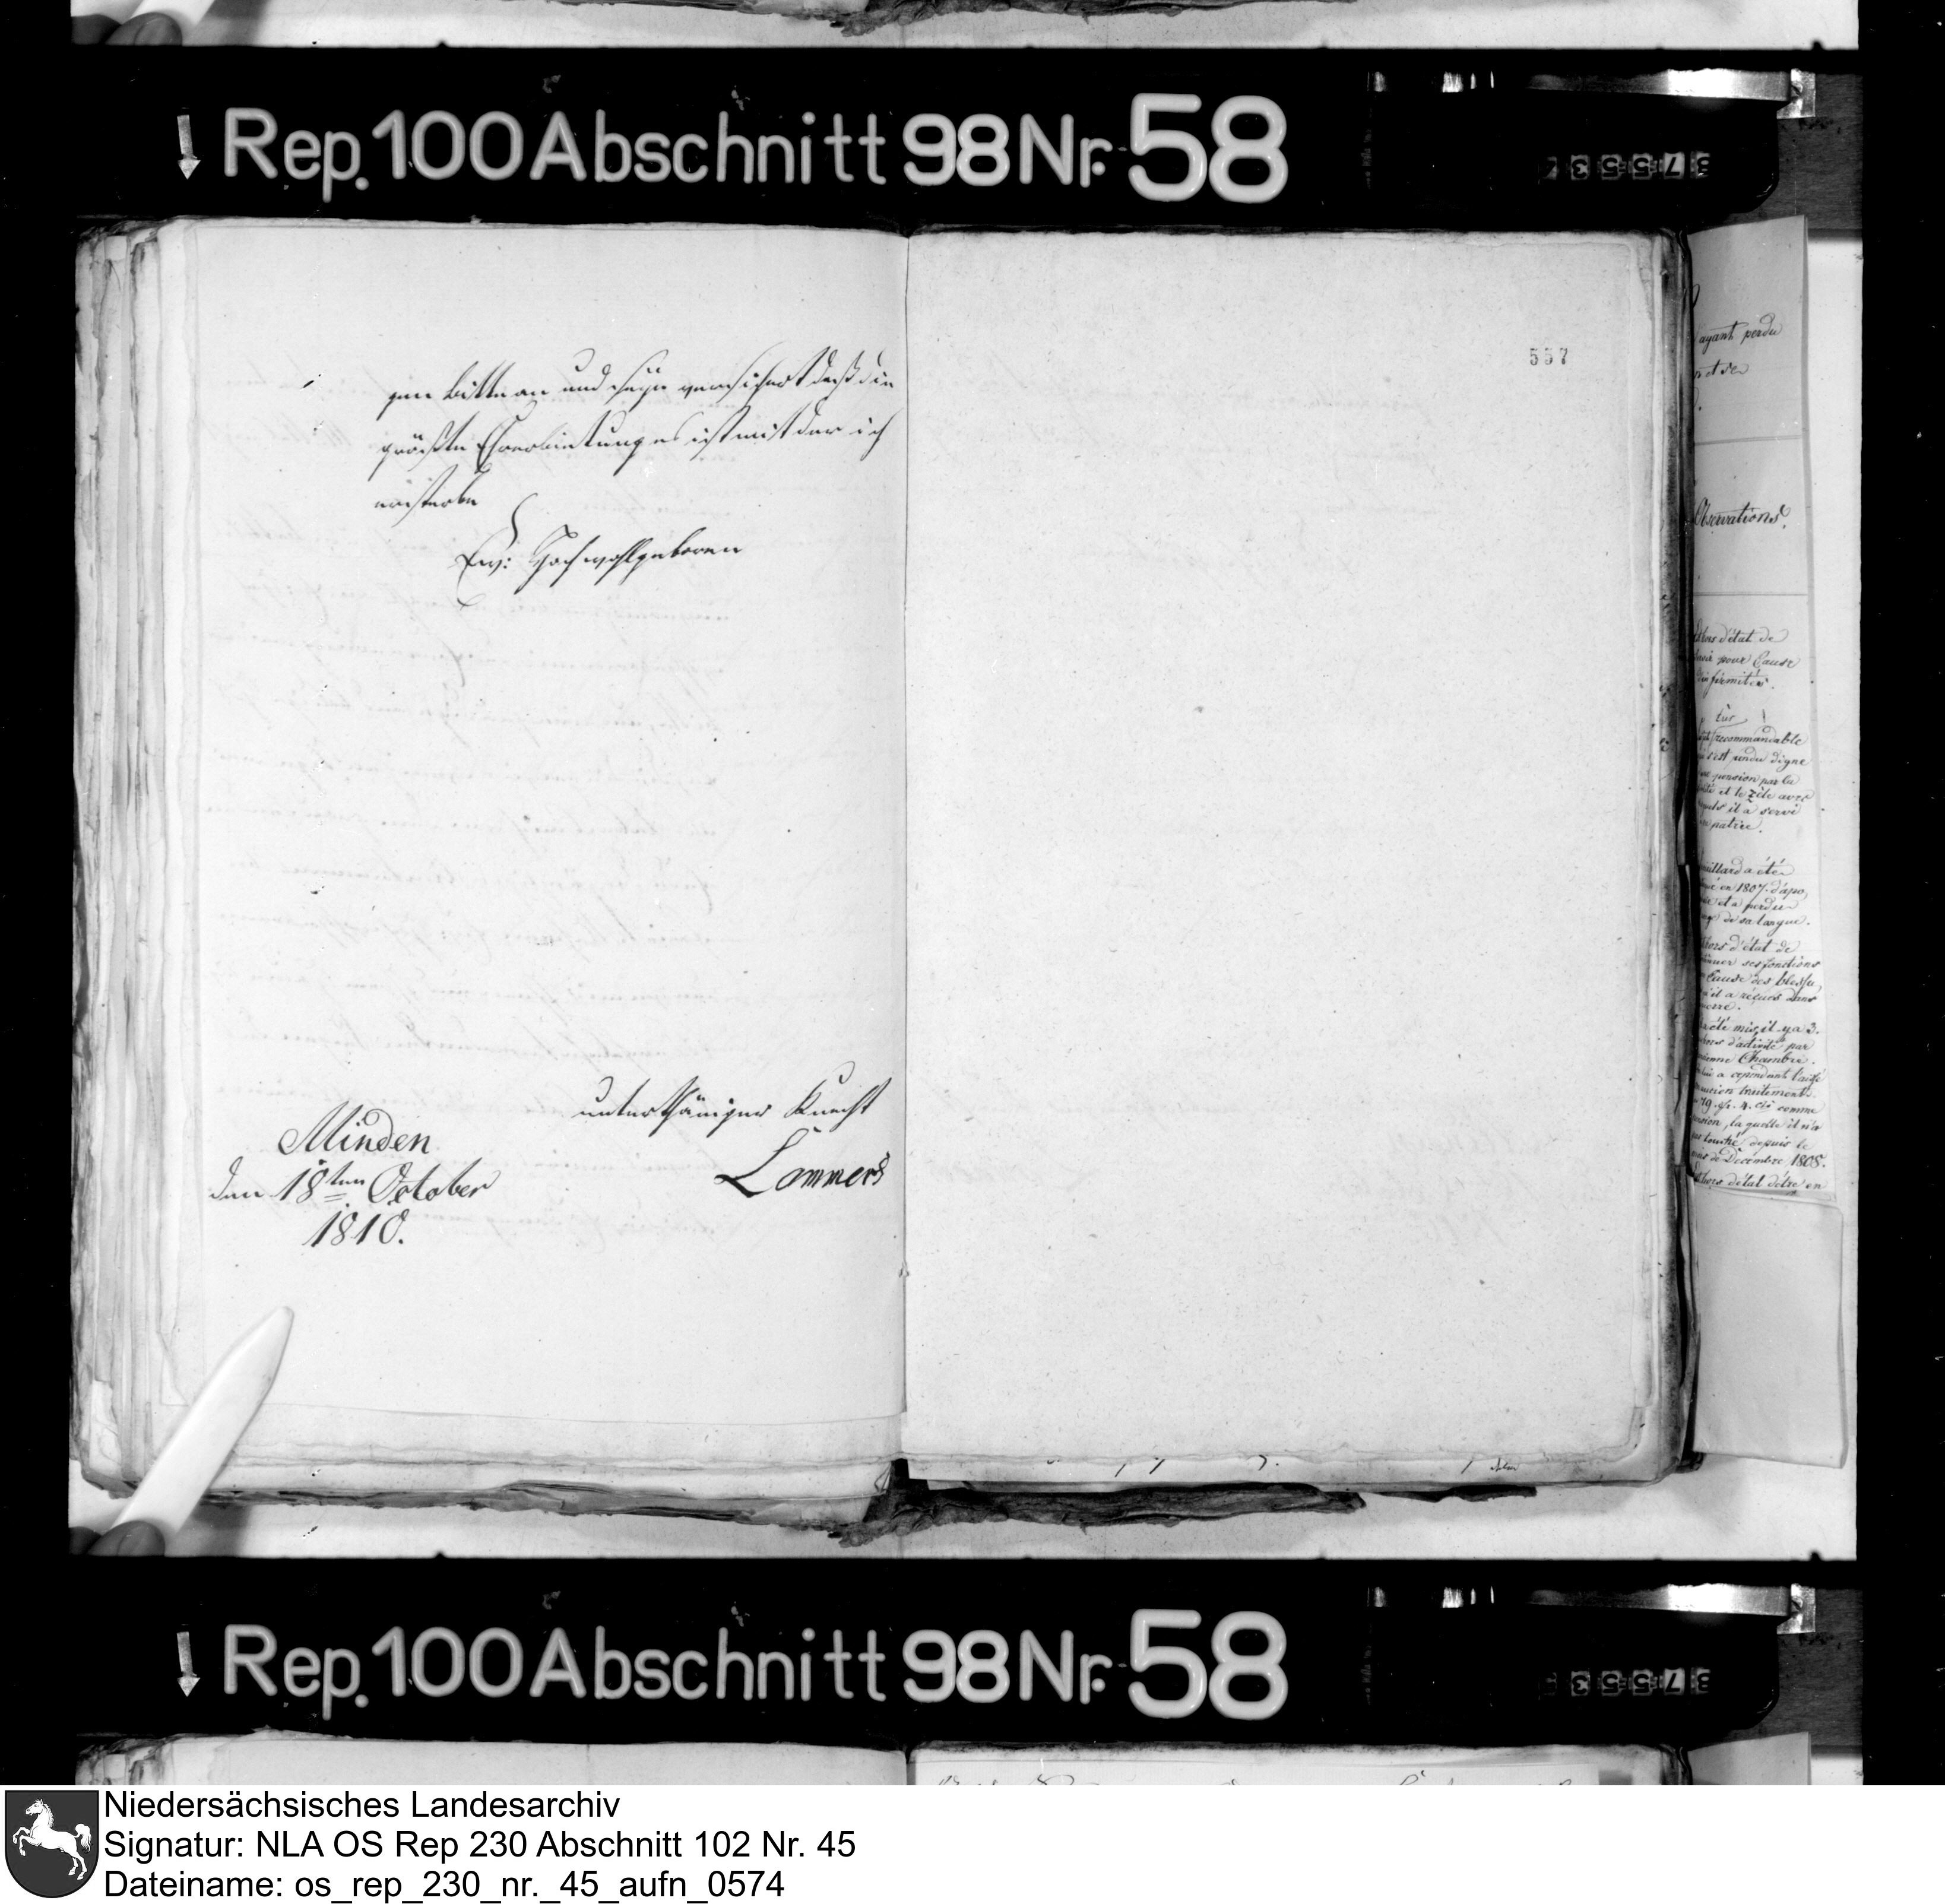 Rep. 100 Abschnitt 98 Nr. 58
gen bitten an und seyn versichert daß die
größte Ehrerbietung es ist mit der ich
ersterbe
Ew: Hochwohlgeboren
unterthäniger Knecht
Lammers
Minden
den 18ten October
1810.
557
ayant perdu
Observations.
hors d'état de
pour Cause
d'infirmités.
recommandable
s'est rendu digne
pension par la
et le zèle avec
il a servi
patrie.
a été
en 1807. d'apo
et a perdu
de sa langue.
hors d'état de
ses fonctions
Cause des blessu
qu'il a reçues dans
a été mis, il y a 3.
hors d'activité par
Chambre.
lui a cependant laissé
traitement
comme
pension, laquelle il n'a
touché depuis le
mois de Decembre 1808.
hors d'état d'être en
Rep. 100 Abschnitt 98 Nr. 58
Niedersächsisches Landesarchiv
Signatur: NLA OS Rep 230 Abschnitt 102 Nr. 45
Dateiname: os_rep_230_nr._45_aufn_0574